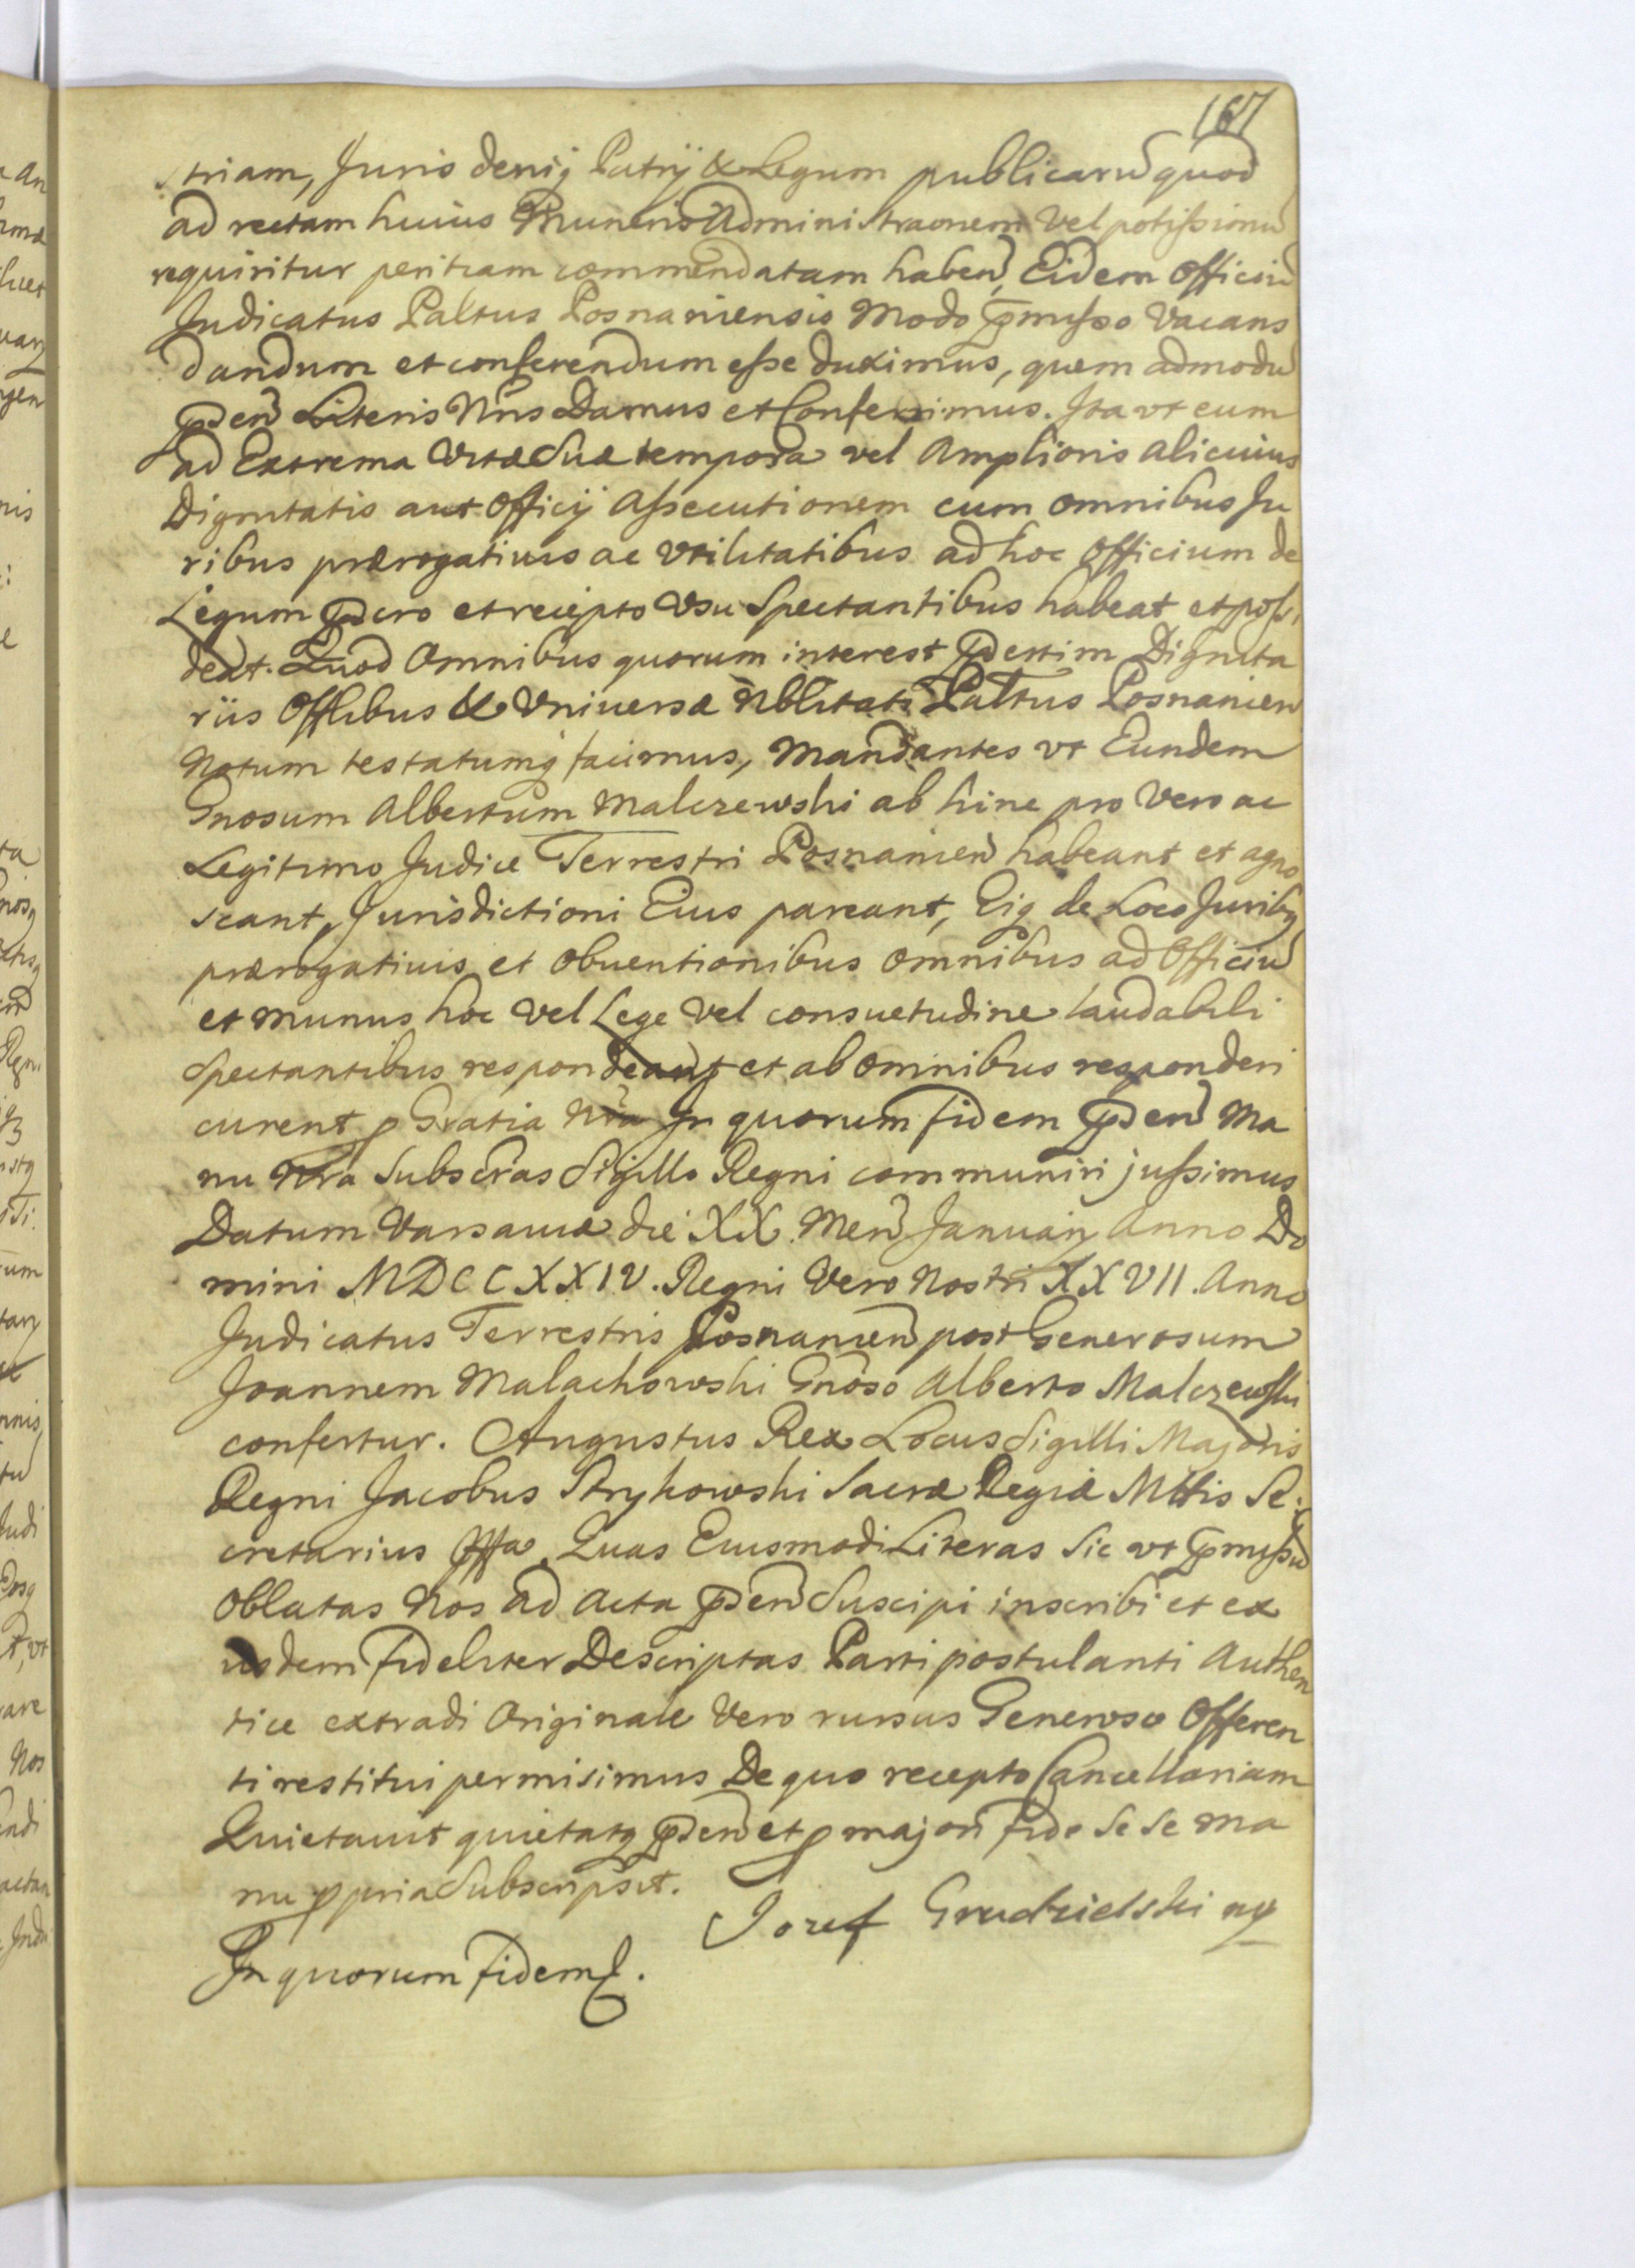 167
striam, Juris deniq Patrij & Legum publicarũ quod
ad rectam huius Muneris Administraonem vel potissimũ
requiritur peritiam commendatam haben̄, Eidem Officiũ
Judicatus Paltus Posnaniensis Modo pmisso Vacans
dandum et conferendum esse duximus, quem admodũ
pn̄den̄ Literis Nr̄is Damus et Conferimus. Ita vt eum
ad Extrema Vitæ Suæ tempora vel Amplioris alicuius
Dignitatis aut Officij Assecutionem cum omnibus Ju
ribus prærogatiuis ac Vtilitatibus ad hoc Officium de
Legum pscro et recepto Vsu Spectantibus habeat et possi
deat. Quod Omnibus quorum interest psertim Dignita
riis Offlibus & Vniuersæ Nblitati Paltus Posnanien̄
Notum testatumq facimus, Mandantes vt Eundem
Gnosum Albertum Malczewski ab hinc pro Vero ac
Legitimo Judice Terrestri Posnanien̄ habeant et agno
scant, Jurisdictioni Eius pareant, Eiq de Loco Juribq
prærogatiuis et obuentionibus omnibus ad Officiũ
et munus hoc vel Lege vel consuetudine laudabili
Spectantibus respondeant et ab omnibus responderi
curent p Gratia Nr̄a In quorum fidem pn̄den̄ Ma
nu Nra Subscras Sigillo Regni communiri jussimus
Datum Varsauiæ die XX. Men̄ Januarij Anno Do
mini MDCCXXIV. Regni Vero Nostri XXVII. Anno
Judicatus Terrestris Posnanien̄ post Generosum
Joannem Malachowski Gnoso Alberto Malczewski
confertur. Augustus Rex Locus Sigilli Majoris
Regni Jacobus Strykowski Sacræ Regiæ Mttis Se
cretarius Quas Eiusmodi Literas Sic vt pmissũ
Oblatas Nos ad Acta pn̄den̄ Suscipi inscribi et ex
iisdem fideliter Descriptas Parti postulanti Authen
tice extradi Originale Vero rursus Generoso Offeren
ti restitui permisimus De quo recepto Cancellariam
Quietauit quietatq pn̄den̄ et p majori fide Se Se ma
nu ppria Subscripsit.
Jozef Grudzielski mp
In quorum fidem.